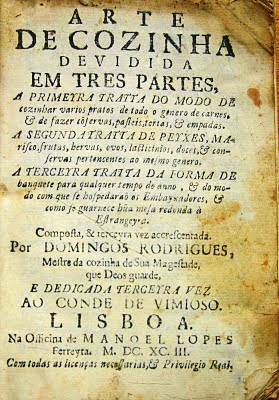 ARTE
DE COZINHA
DEVIDIDA
EM TRES PARTES,
A PRIMEYRA TRATTA DO MODO DE
cozinhar varios pratos de todo o genero de carnes,
& de fazer cõservas, pasteis, tortas, & empadas.
A SEGUNDA TRATTA DE PEYXES, MA-
risco, frutas, hervas, ovos, lacticinios, doces, & con-
servas pertencentes ao mesmo genero.
A TERCEYRA TRATTA DA FORMA DE
banquete para qualquer tempo do anno, & do mo-
do com que se hospedaraõ os Embayxadores, &
como se guarnece hũa mesa redonda à
Estrangeyra.
Composta, & terceyra vez accrescentada.
Por DOMINGOS RODRIGUES,
Mestre da cozinha de Sua Magestade,
que Deos guarde,
E DEDICADA TERCEYRA VEZ
AO CONDE DE VIMIOSO.
LISBOA.
Na Officina de MANOEL LOPES
Ferreyra. M. DC. XC. III.
Com todas as licenças necessarias, & Privilegio Real.